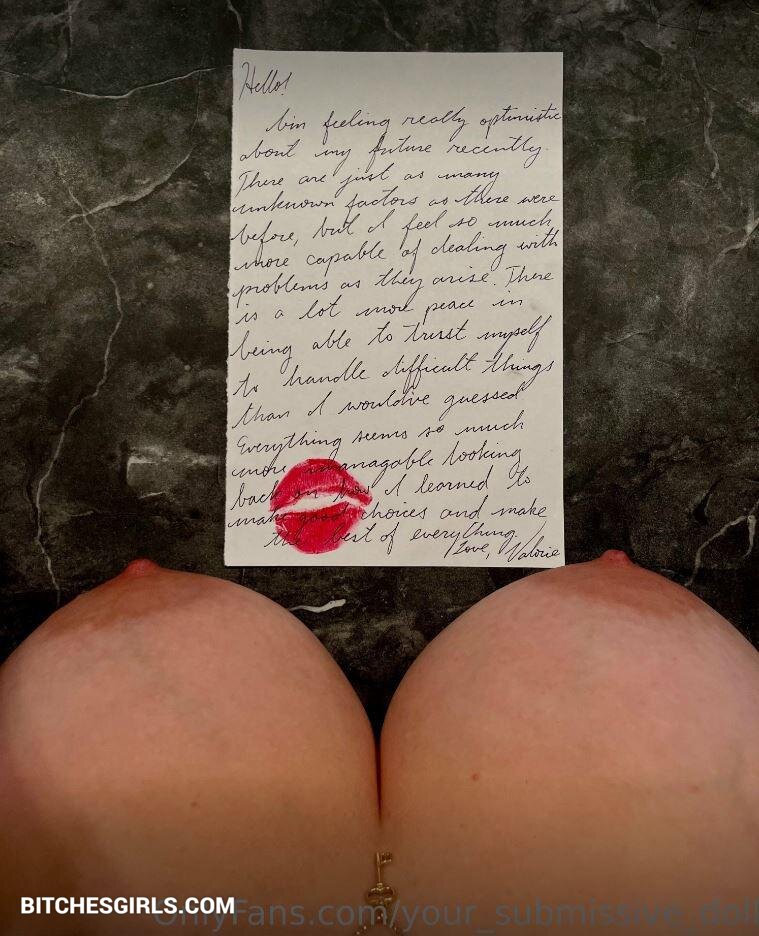 Hello!
I'm feeling really optimistic
about my future recently.
There are just as many
unknown factors as there were
before, but I feel so much
more capable of dealing with
problems as they arise. There
is a lot more peace in
being able to trust myself
to handle difficult things
than I would've guessed
Everything seems so much
more managable looking
back on how I learned to
make good choices and make
the best of everything.
Love, Valorie
BITCHESGIRLS.COM
OnlyFans.com/your_submissive_doll